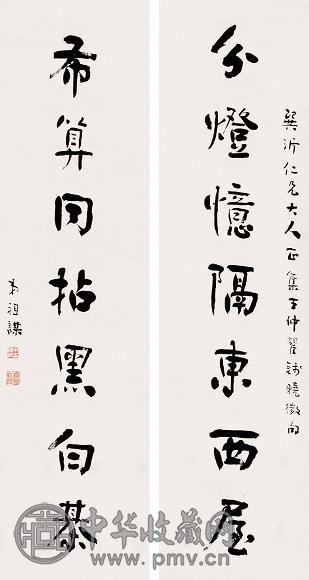 巽沂仁兄大人正集王仲瞿錢曉徵句
分燈憶隔東西屋
布算同拈黑白棊
朱祖謀
中华收藏网
www.pmv.cn